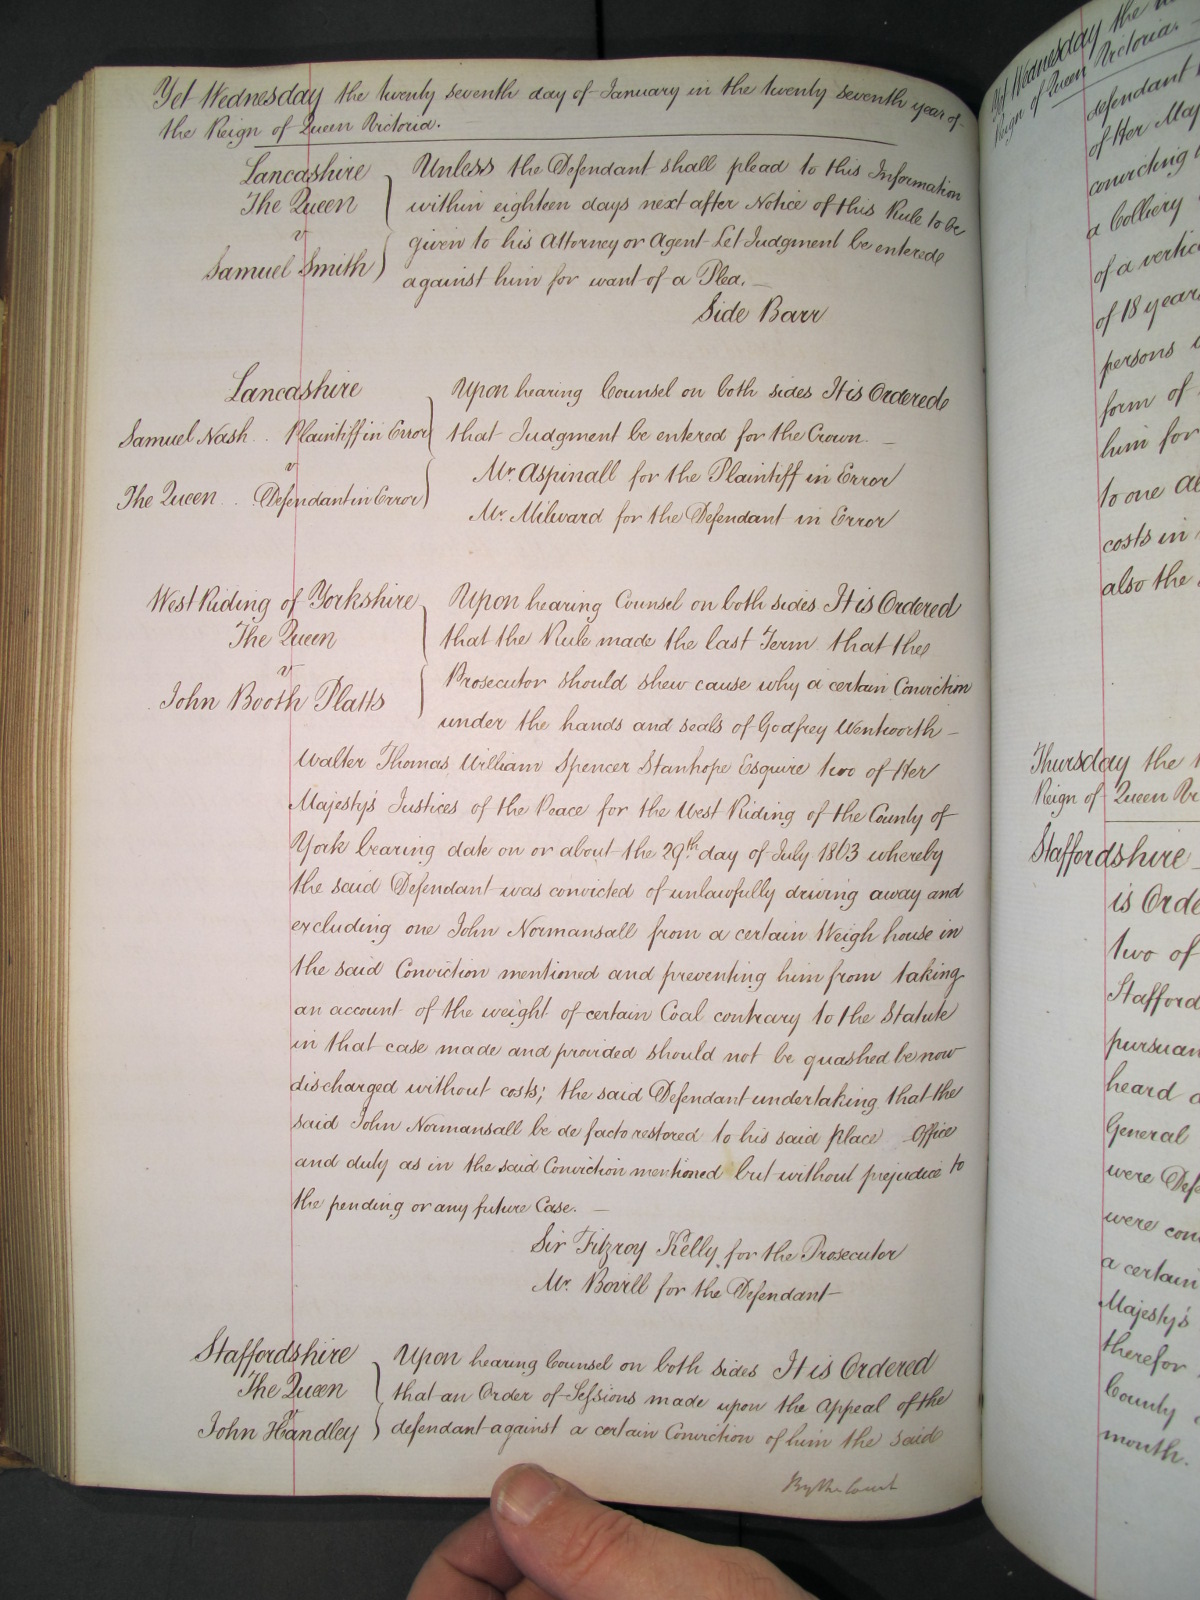 Yet Wednesday the twenty seventh day of January in the twenty seventh year of
the Reign of Queen Victoria.
Lancashire
The Queen
v
Samuel Smith
Unless the Defendant shall plead to this Information
within eighteen days next after Notice of this Rule to be
given to his Attorney or Agent Let Judgment be entered
against him for want of a Plea.
Side Barr
Lancashire
Samuel Nash . . Plaintiff in Error
v
The Queen . . Defendant in Error
Upon hearing Counsel on both sides It is Ordered
that Judgment be entered for the Crown
Mr. Aspinall for the Plaintiff in Error
Mr. Milward for the Defendant in Error
West Riding of Yorkshire
The Queen
v
John Booth Platts
Upon hearing Counsel on both sides It is Ordered
that the Rule made the last Term that the
Prosecutor should shew cause why a certain Conviction
under the hands and seals of Godfrey Wentworth
Walter Thomas William Spencer Stanhope Esquire two of Her
Majesty's Justices of the Peace for the West Riding of the County of
York bearing date on or about the 29th day of July 1863 whereby
the said Defendant was convicted of unlawfully driving away and
excluding one John Normansall from a certain Weigh house in
the said Conviction mentioned and preventing him from taking
an account of the weight of certain Coal contrary to the Statute
in that case made and provided should not be quashed be now
discharged without costs; the said Defendant undertaking that the
said John Normansall be de facto restored to his said place Office
and duly as in the said Conviction mentioned but without prejudice to
the pending or any future Case.
Sir Fitzroy Kelly for the Prosecutor
Mr. Bovill for the Defendant
Staffordshire
The Queen
v
John Handley
Upon hearing Counsel on both sides It is Ordered
that an Order of Sessions made upon the Appeal of the
defendant against a certain Conviction of him the said
By the Court
Yet Wednesday the
Reign of Queen Victoria
defendant
of Her Maj
convicting
a Colliery
of a vertic
of 18 years
persons
form of
him for
to one
costs in
also the
Thursday the
Reign of Queen Vi
Staffordshire
is Orde
two of
Stafford
pursuan
heard
General
were Def
were con
a certain
Majesty's
therefor
County
month.